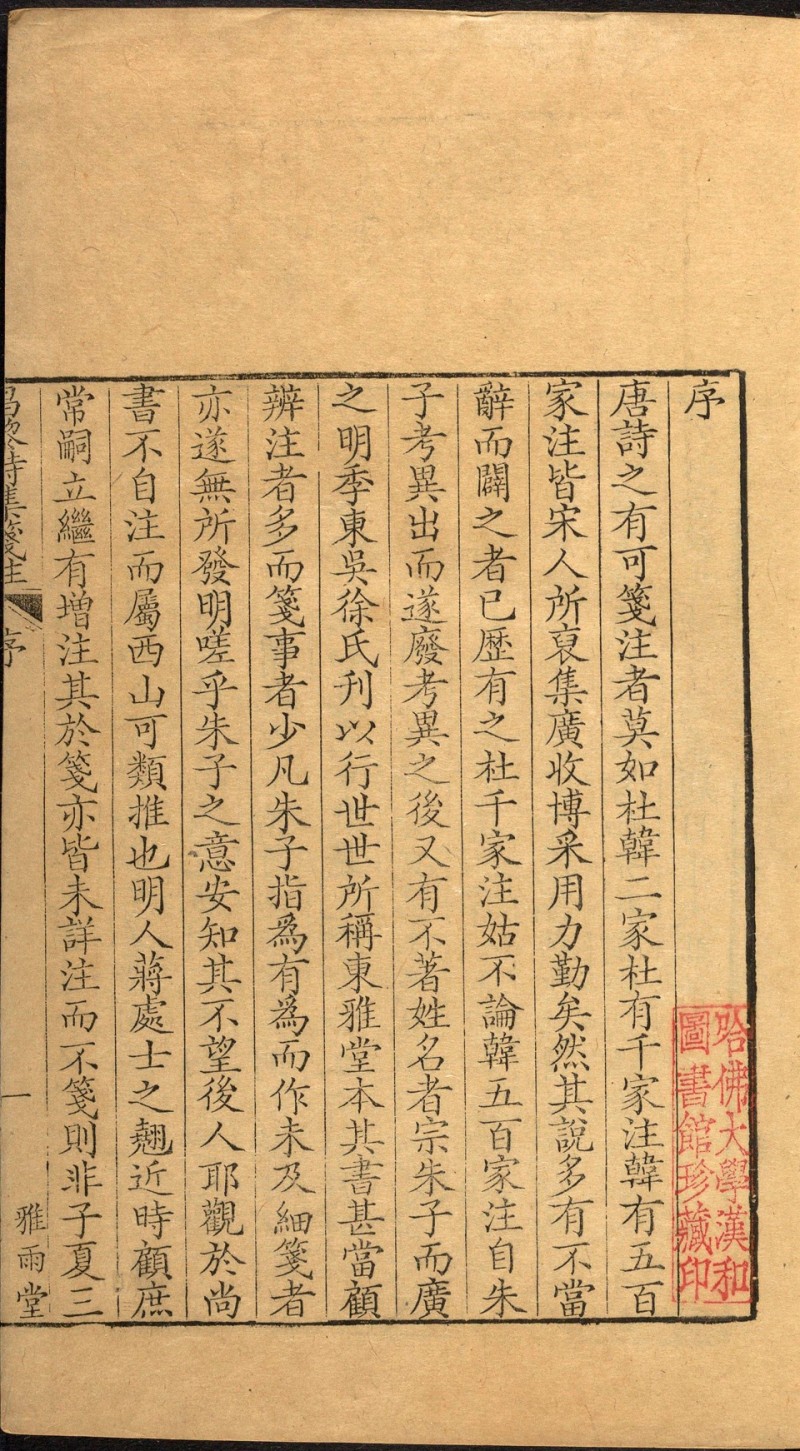 序
唐詩之有可箋注者莫如杜韓二家杜有千家注韓有五百
家注皆宋人所裒集廣收博采用力勤矣然其說多有不當
辭而闢之者已歷有之杜千家注姑不論韓五百家注自朱
子考異出而遂廢考異之後又有不著姓名者宗朱子而廣
之明季東吳徐氏刊以行世世所稱東雅堂本其書甚當顧
辨注者多而箋事者少凡朱子指爲有爲而作未及細箋者
亦遂無所發明嗟乎朱子之意安知其不望後人耶觀於尚
書不自注而屬西山可類推也明人蔣處士之翹近時顧庶
常嗣立繼有增注其於箋亦皆未詳注而不箋則非子夏三
昌黎詩集箋注
序
一
雅雨堂
哈佛大學漢和
圖書館珍藏印